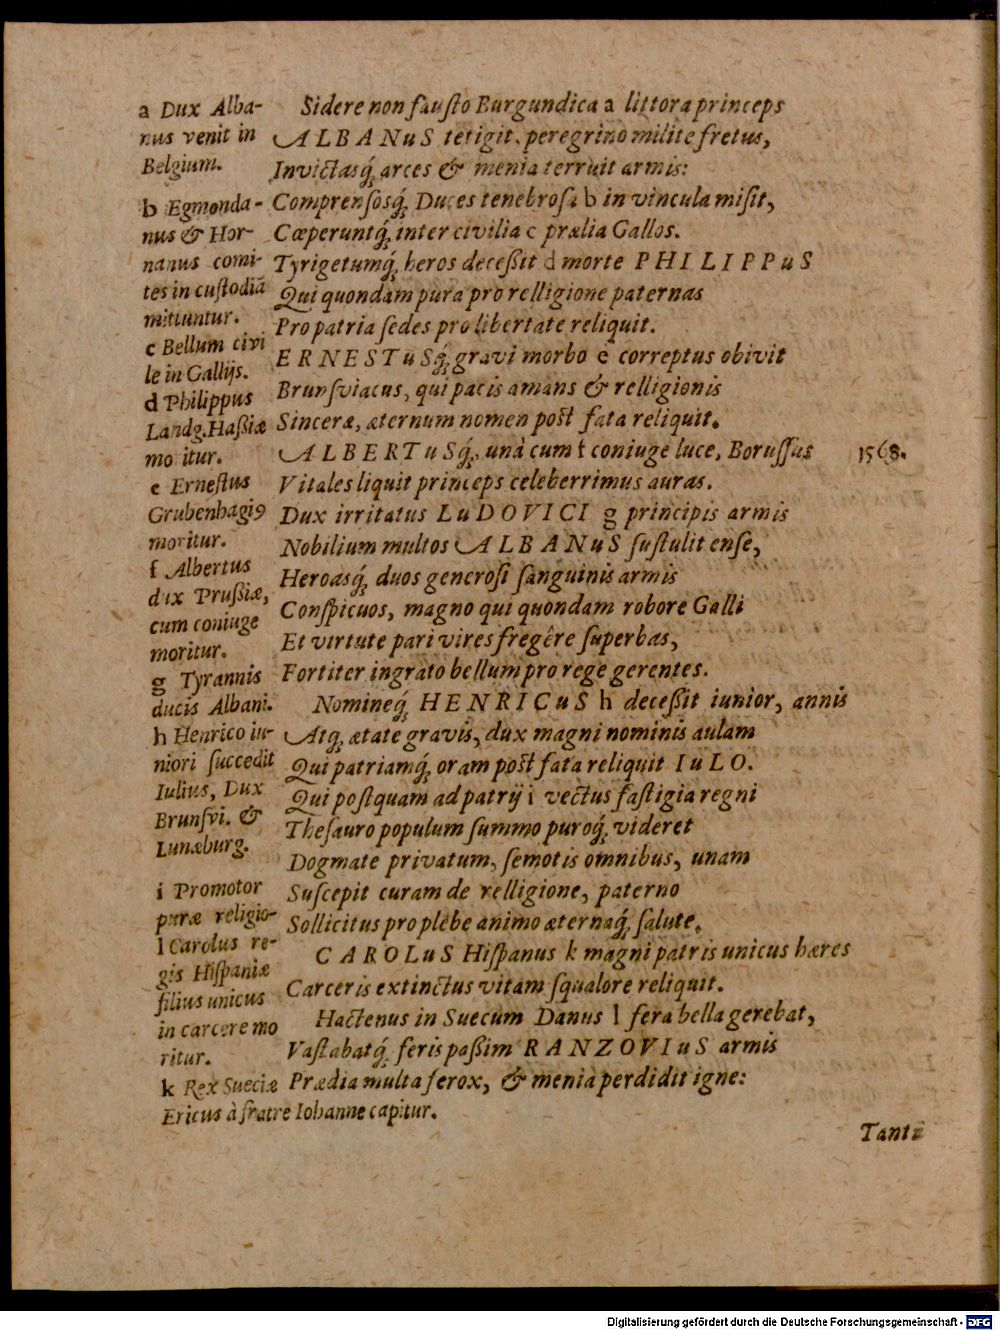 a Dux Alba-
nus venit in
Belgium.
b Egmonda-
nus & Hor-
nanus comi-
tes in custodiã
mittuntur.
c Bellum civi
le in Gallijs.
d Philippus
Landg. Haßiæ
moritur.
e Ernestus
Grubenhagiꝰ
moritur.
f Albertus
dux Prußiæ,
cum coniuge
moritur.
g Tyrannis
ducis Albani.
h Henrico iu-
niori succedit
Iulius, Dux
Brunsvi. &
Lunæburg.
i Promotor
puræ religio-
l Carolus re-
gis Hispaniæ
filius unicus
in carcere mo
ritur.
k Rex Sueciæ
Ericus à fratre Iohanne capitur.
Sidere non fausto Burgundica a littora princeps
ALBANuS tetigit, peregrino milite fretus,
Invictasq́; arces & menia terruit armis:
Comprensosq́; Duces tenebrosa b in vincula misit,
Cœperuntq́; inter civilia c prælia Gallos.
Tyrigetumq́; heros deceßit d morte PHILIPPuS
Qui quondam pura pro relligione paternas
Pro patria sedes pro libertate reliquit.
ERNESTuSq́; gravi morbo e correptus obivit
Brunsviacus, qui pacis amans & relligionis
Sinceræ, æternum nomen post fata reliquit.
ALBERTuSq́;, unà cum f coniuge luce, Borussus
1568.
Vitales liquit princeps celeberrimus auras.
Dux irritatus LuDOVICI g principis armis
Nobilium multos ALBANuS sustulit ense,
Heroasq́; duos generosi sanguinis armis
Conspicuos, magno qui quondam robore Galli
Et virtute pari vires fregêre superbas,
Fortiter ingrato bellum pro rege gerentes.
Nomineq́; HENRICuS h deceßit iunior, annis
Atq; ætate gravis, dux magni nominis aulam
Qui patriamq́; oram post fata reliquit IuLO.
Qui postquam ad patrij i vectus fastigia regni
Thesauro populum summo puroq́; videret
Dogmate privatum, semotis omnibus, unam
Suscepit curam de relligione, paterno
Sollicitus pro plebe animo æternaq́; salute.
CAROLuS Hispanus k magni patris unicus hæres
Carceris extinctus vitam squalore reliquit.
Hactenus in Suecum Danus l fera bella gerebat,
Vastabatq́; feris paßim RANZOVIuS armis
Prædia multa ferox, & menia perdidit igne:
Tanta
Digitalisierung gefördert durch die Deutsche Forschungsgemeinschaft - DFG